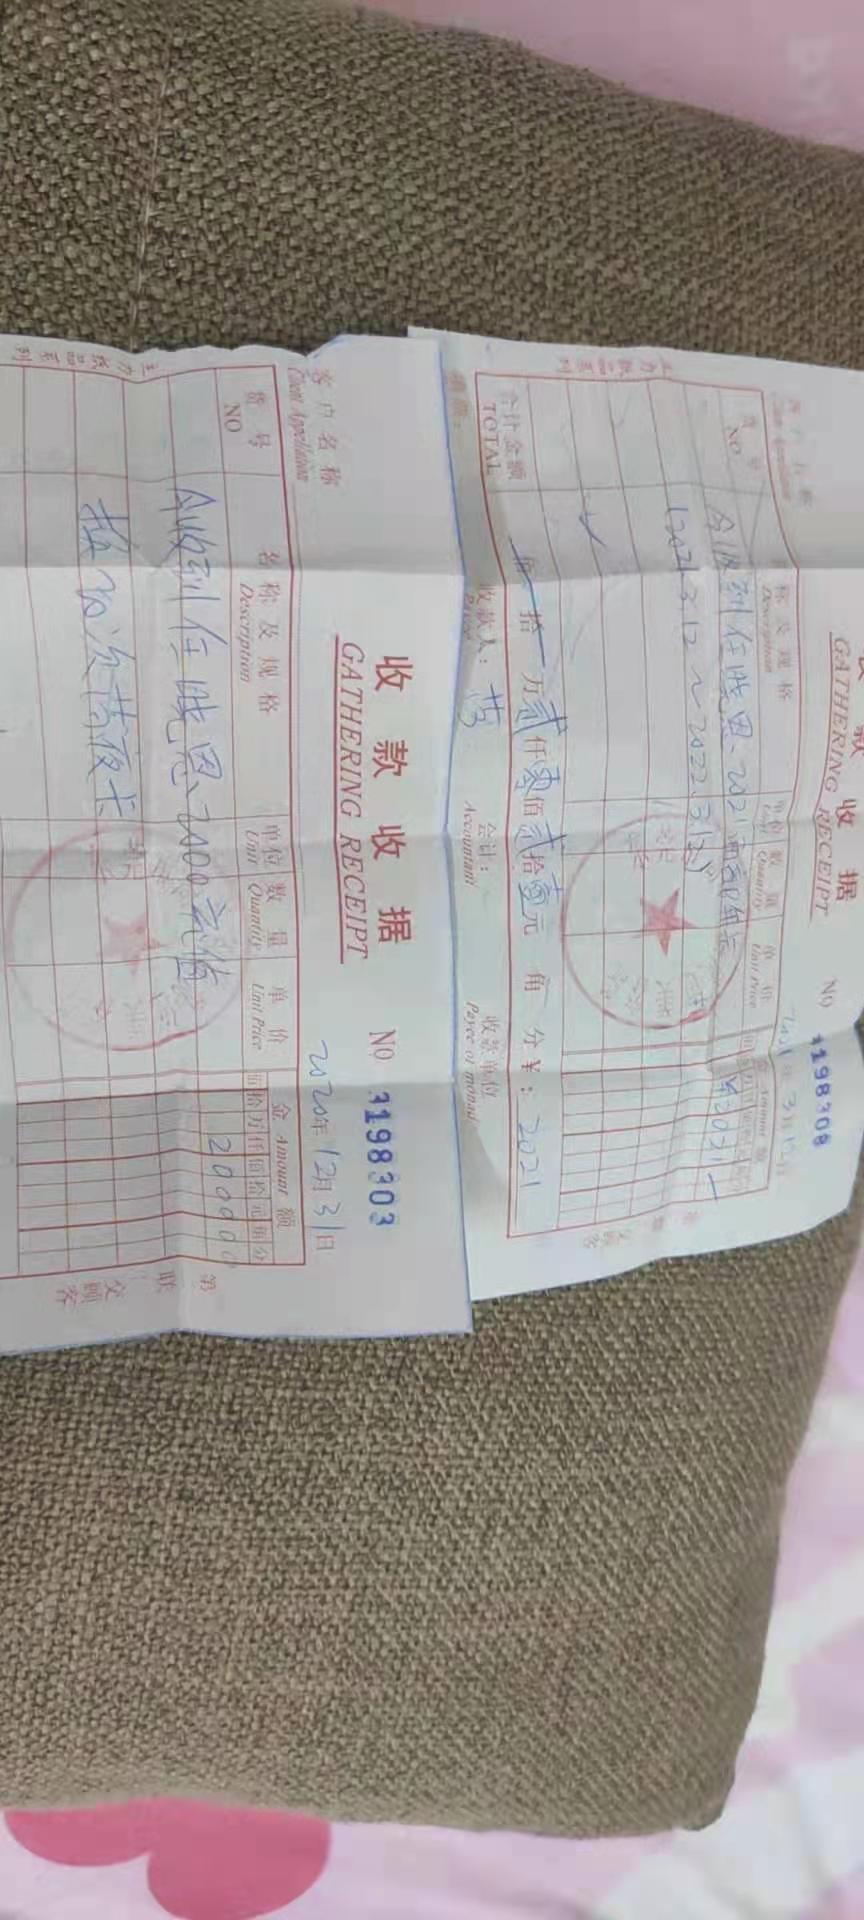 收款收据
GATHERING RECEIPT
NO 3198308
2021年3月12日
货号
NO
名称及规格
Description
单位
Unit
数量
Quantity
单价
Unit Price
金额
Amount
今收到任晓恩、2021
(2021.3.12~2022.3.12)
2021
合计金额
TOTAL
佰拾万贰仟零佰贰拾壹元角分¥:2021
收款人:
Payee
会计:
Accountant
收款单位
主力纸品系列
收款收据
GATHERING RECEIPT
NO 3198303
2020年12月31日
客户名称
Client Appellation
货号
NO
名称及规格
Description
单位
Unit
数量
Quantity
单价
Unit Price
金额
Amount
佰拾万仟佰拾元角分
今收到任晓恩、2000元值
200000
主力纸品系列
第
联
交顾客